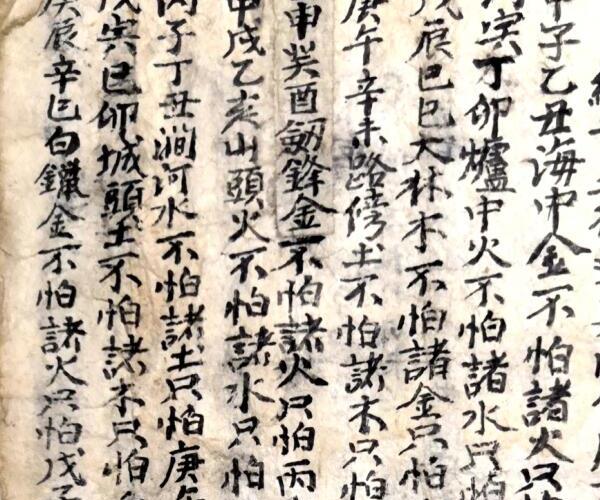 甲子乙丑海中金不怕諸火只
寅丁卯爐中火不怕諸水只怕
戊辰己巳大林木不怕諸金只怕
庚午辛未路傍土不怕諸木只怕
申癸酉劔鋒金不怕諸火只怕丙
甲戌乙亥山頭火不怕諸水只怕
丙子丁丑澗河水不怕諸土只怕庚午
戊寅己卯城頭土不怕諸木只怕
庚辰辛巳白鑞金不怕諸火只怕戊子